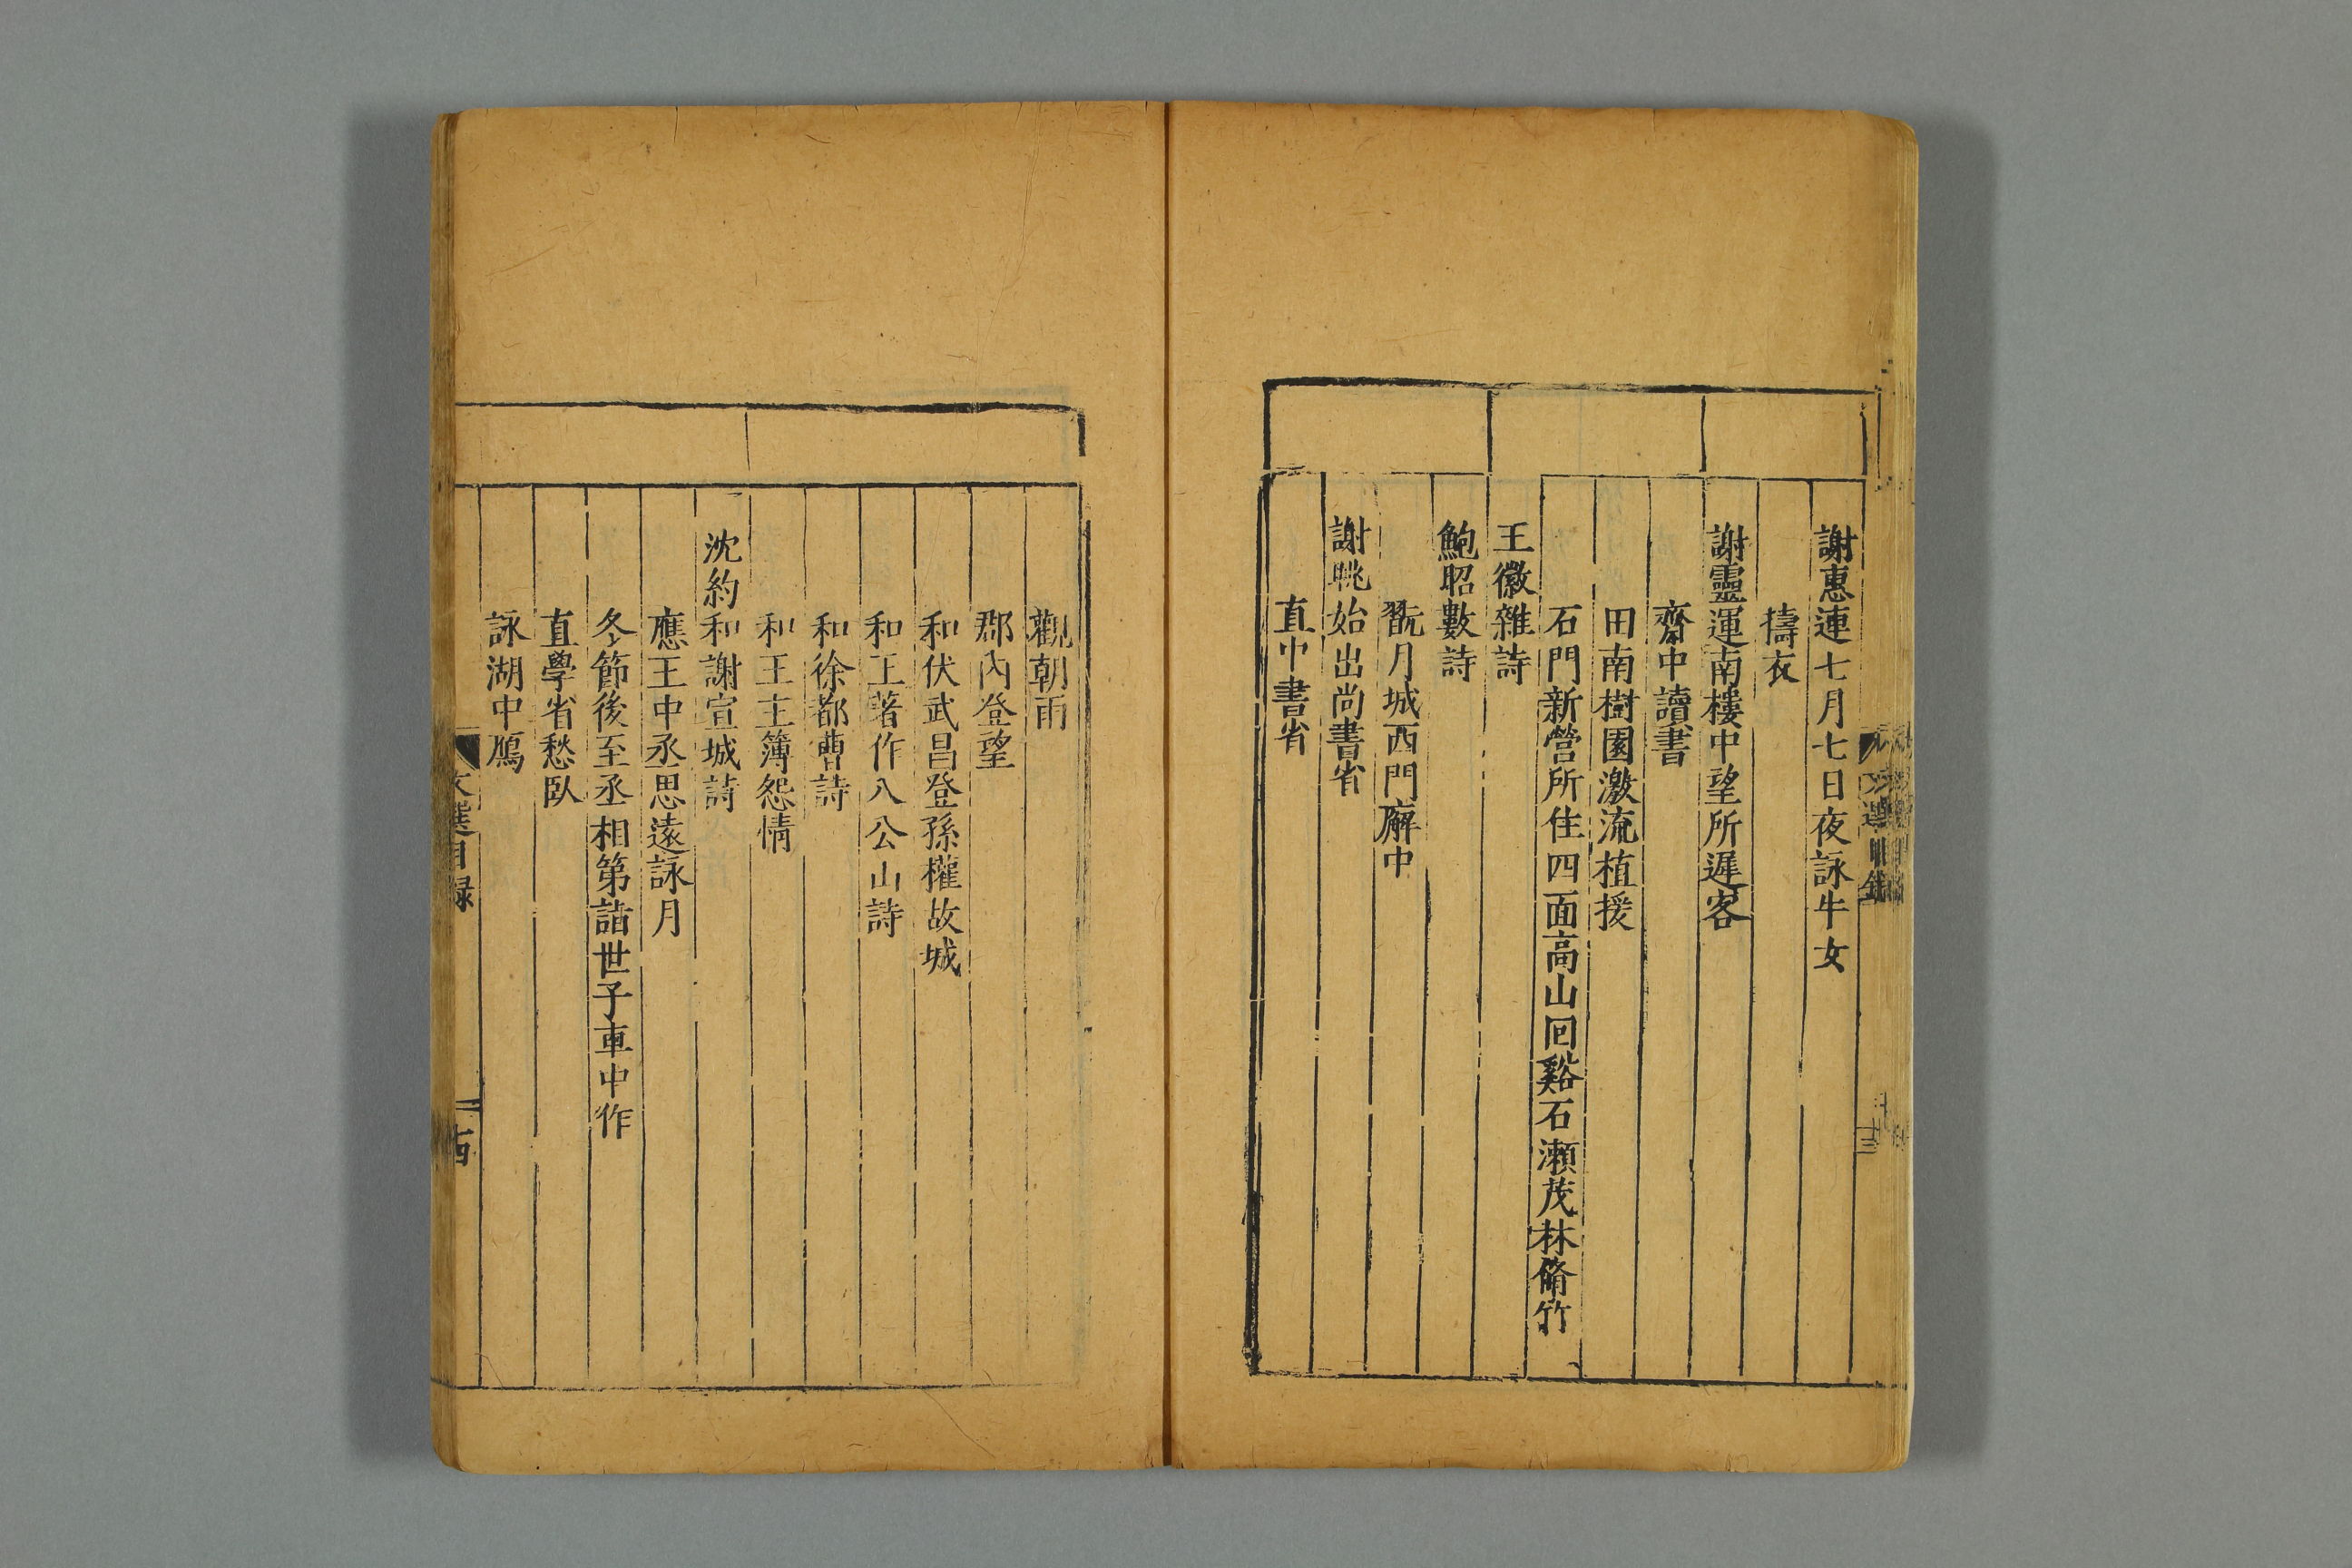 謝惠連七月七日夜詠牛女
擣衣
謝靈運南樓中望所遲客
齋中讀書
田南樹園激流植援
石門新營所住四面高山回谿石瀨茂林脩竹
王徽雜詩
鮑昭數詩
翫月城西門廨中
謝眺始出尚書省
直中書省
觀朝雨
郡內登望
和伏武昌登孫權故城
和王著作八公山詩
和徐都曹詩
和王主簿怨情
沈約和謝宣城詩
應王中丞思遠詠月
冬節後至丞相第詣世子車中作
直學省愁臥
詠湖中鴈
文選目録